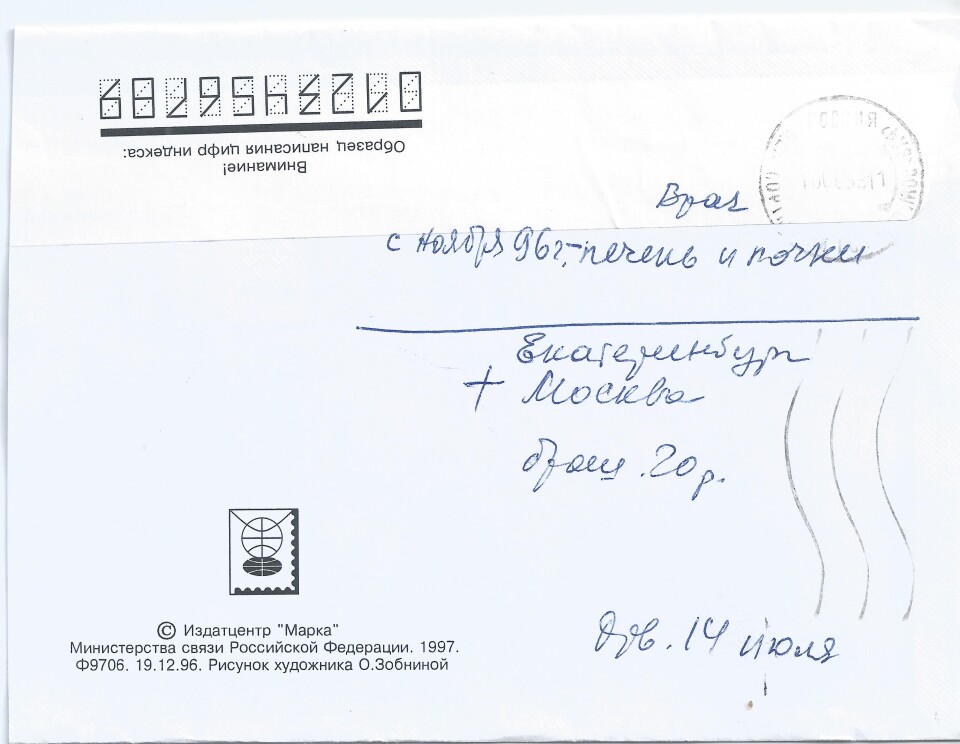 0123456789
Внимание!
Образец написания цифр индекса:
Врач
с ноября 96г.-печень и почки
Екатеринбург
+ Москва
20р.
14 июля
© Издатцентр "Марка"
Министерства связи Российской Федерации. 1997.
Ф9706. 19.12.96. Рисунок художника О.Зобниной